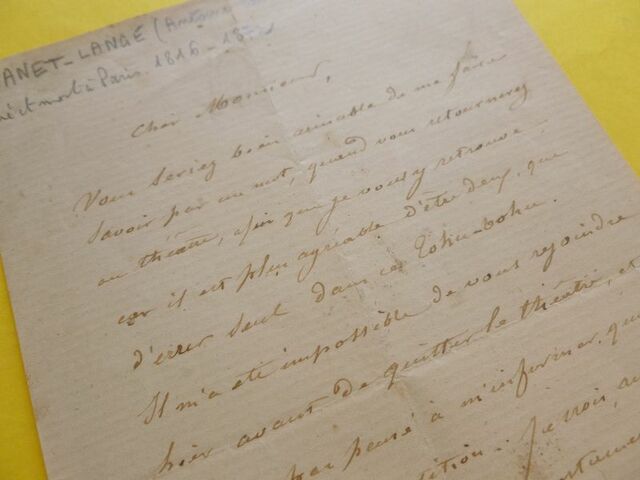 ANET-LANGE (Antoine
né et mort à Paris 1816-18
Cher Monsieur,
Vous seriez bien aimable de me faire
savoir par un mot, quand vous retournerez
au théatre, afin que je vous y retrouve,
car il est plus agréable d'être deux, que
d'errer seul dans ce Tohu-bohu.
Il m'a été impossible de vous rejoindre
hier avant de quitter le théatre, et
pas pensé à m'informer, que
Je vois, au